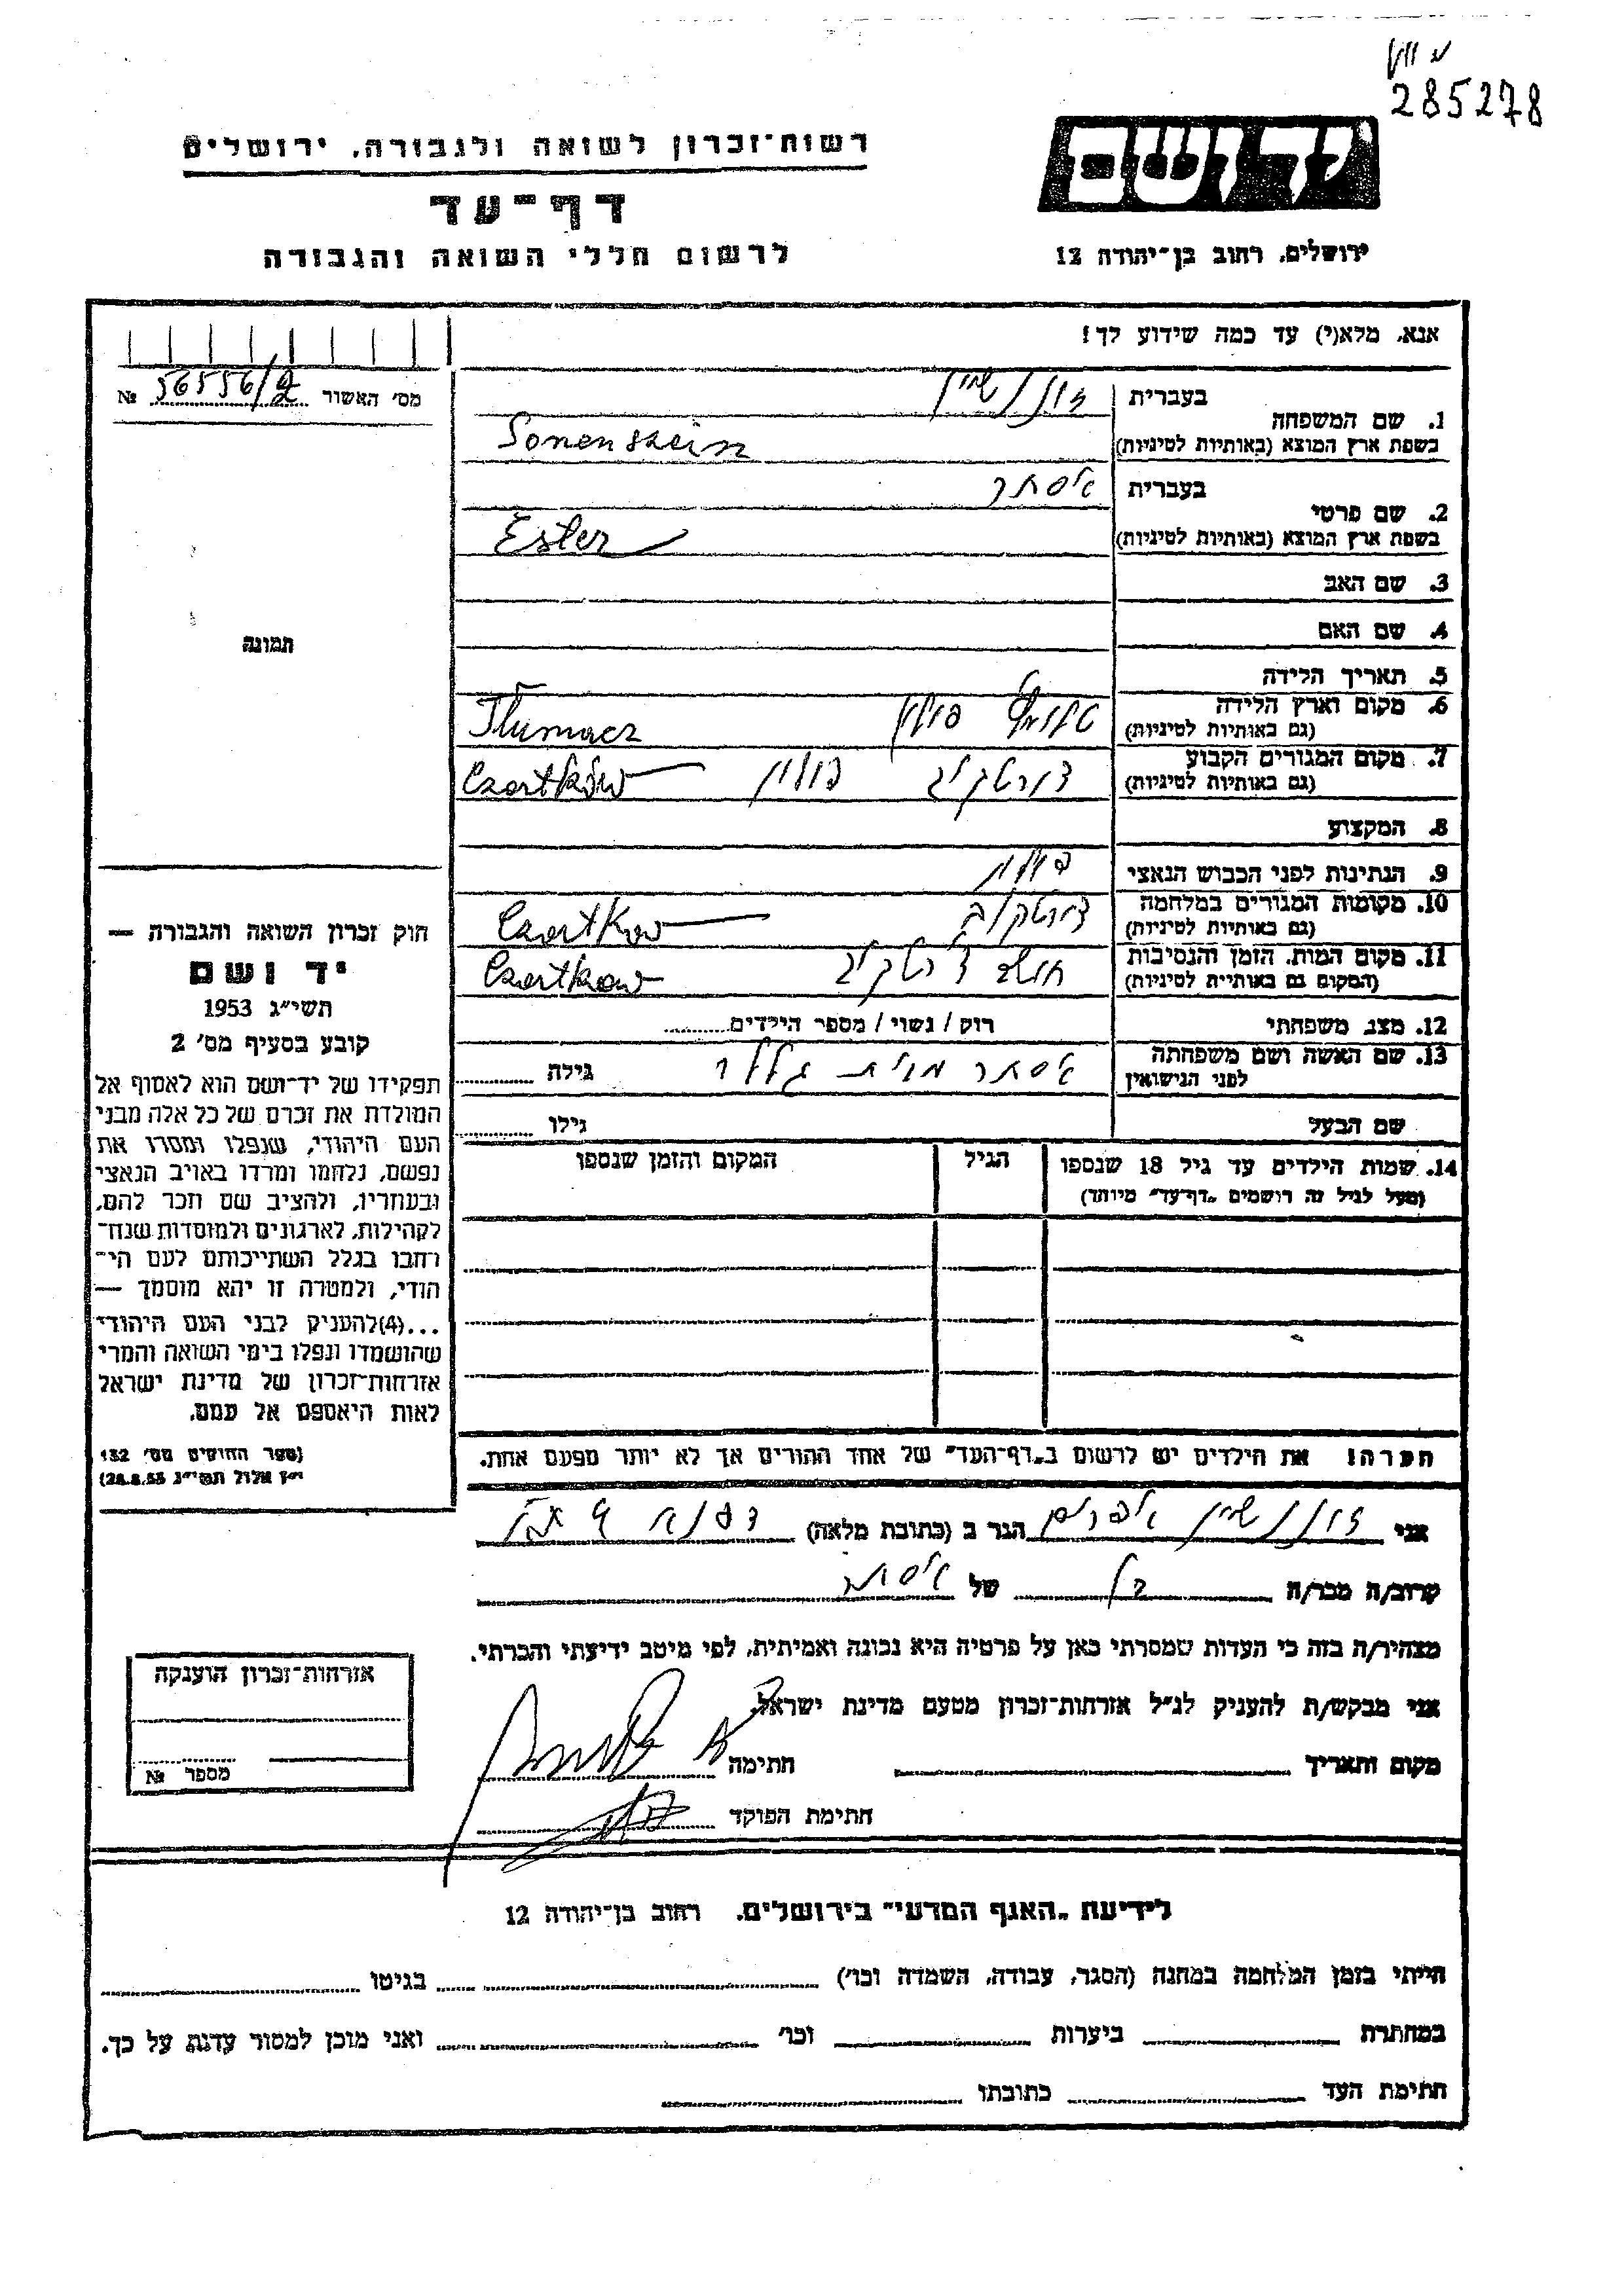 285278
יד ושם
ירושלים, רחוב בן־יהודה 12
רשות־זכרון לשואה ולגבורה, ירושלים
דף־עד
לרשום חללי השואה והגבורה
אנא, מלא(י) עד כמה שידוע לך!
מס׳ האשור № 56556/2
1. שם המשפחה
בעברית זוננשיין
בשפת ארץ המוצא (באותיות לטיניות) Sonenshein
2. שם פרטי
בעברית אסתר
בשפת ארץ המוצא (באותיות לטיניות) Ester
3. שם האב
4. שם האם
תמונה
5. תאריך הלידה
6. מקום וארץ הלידה פולין Tłumacz
(גם באותיות לטיניות)
7. מקום המגורים הקבוע צורטקוב פולין Czortków
(גם באותיות לטיניות)
8. המקצוע
9. הנתינות לפני הכבוש הנאצי
10. מקומות המגורים במלחמה צורטקוב Czortkow
(גם באותיות לטיניות)
11. מקום המות, הזמן והנסיבות צורטקוב Czortkow
(המקום גם באותיית לטיניות)
12. מצב משפחתי רוק / נשוי / מספר הילדים
13. שם האשה ושם משפחתה אסתר מבית גלר גילה
לפני הנישואין
שם הבעל גילו
14. שמות הילדים עד גיל 18 שנספו הגיל המקום והזמן שנספו
(מעל לגיל זה רושמים „דף־עד” מיוחד)
חוק זכרון השואה והגבורה —
יד ושם
תשי״ג 1953
קובע בסעיף מס׳ 2
תפקידו של יד־ושם הוא לאסוף אל
המולדת את זכרם של כל אלה מבני
העם היהודי, שנפלו ומסרו את
נפשם, נלחמו ומרדו באויב הנאצי
ובעוזריו, ולהציב שם וזכר להם,
לקהילות, לארגונים ולמוסדות שנח־
רחבו בגלל השתייכותם לעם הי־
הודי, ולמטרה זו יהא מוסמך —
...(4)להעניק לבני העם היהודי
שהושמדו ונפלו בימי השואה והמרי
אזרחות־זכרון של מדינת ישראל
לאות היאספם אל עמם.
(ספר החוקים מס׳ 132
י״ז אלול תשי״ג 28.8.53)
הערה! את הילדים יש לרשום ב„דף־העד” של אחד ההורים אך לא יותר מפעם אחת.
אני זוננשיין אפרים הגר ב (כתובת מלאה)
קרוב/ה מכר/ה בן של אסתר
מצהיר/ה בזה כי העדות שמסרתי כאן על פרטיה היא נכונה ואמיתית, לפי מיטב ידיעתי והכרתי.
אני מבקש/ת להעניק לנ״ל אזרחות־זכרון מטעם מדינת ישראל.
מקום ותאריך חתימה
חתימת הפוקד
אזרחות־זכרון הוענקה
מספר №
לידיעת „האגף המדעי” בירושלים, רחוב בן־יהודה 12
הייתי בזמן המלחמה במחנה (הסגר, עבודה, השמדה וכו׳) בגיטו
במחתרת ביערות וכו׳ ואני מוכן למסור עדות על כך.
חתימת העד כתובתו